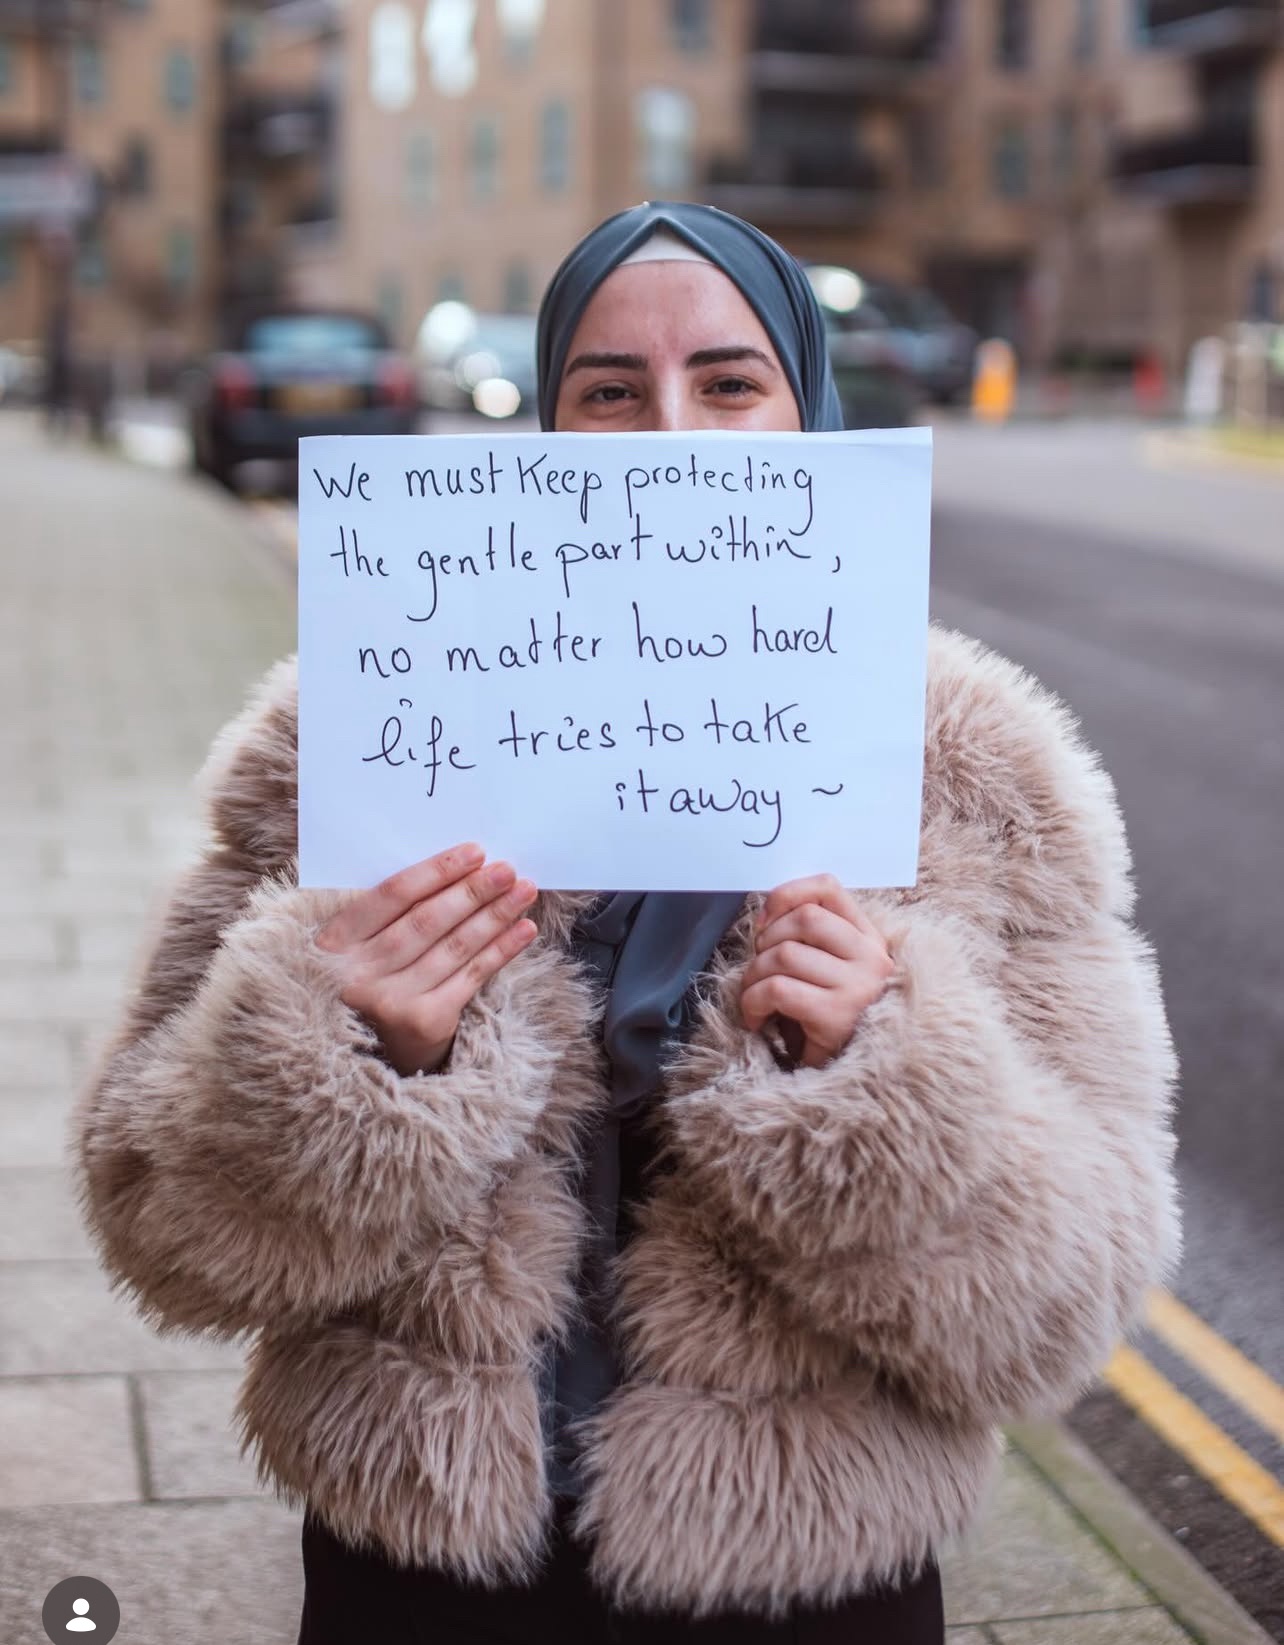 We must Keep protecting
the gentle part within,
no matter how hard
life tries to take
it away ~